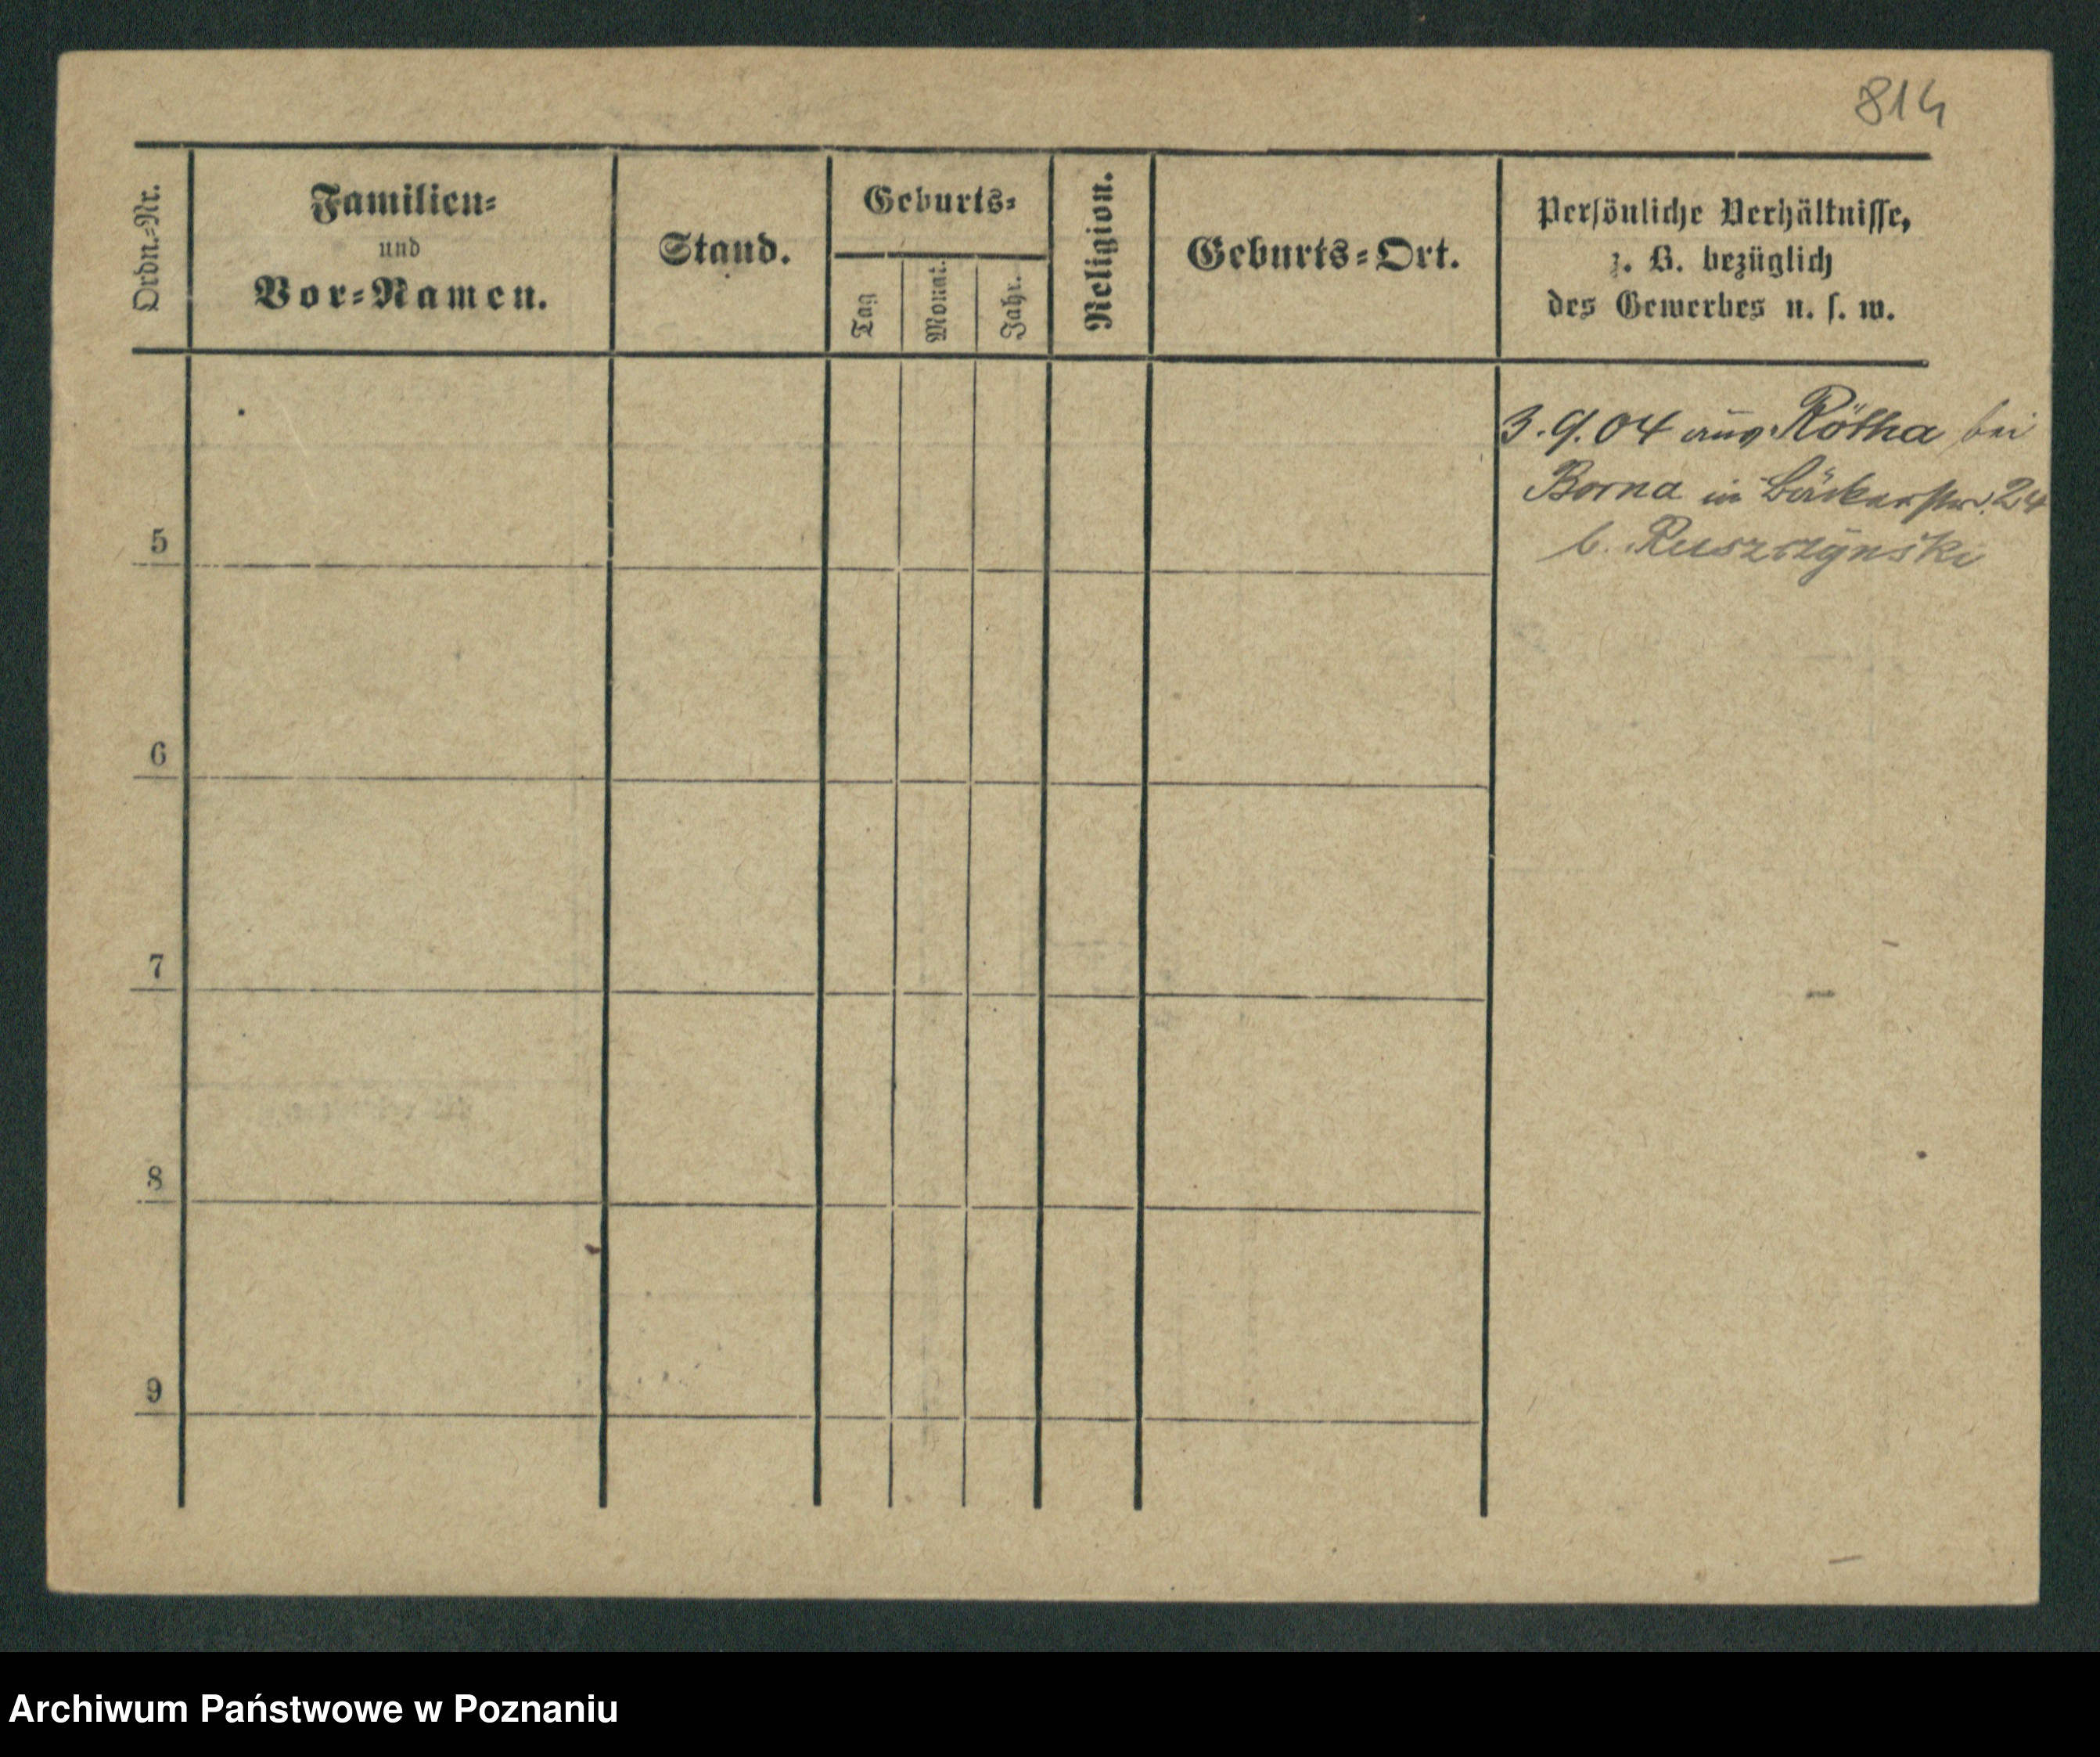 814
Ordn.-Nr.
Familien-
und
Vor-Namen.
Stand.
Geburts-
Tag
Monat.
Jahr.
Religion.
Geburts-Ort.
Persönliche Verhältnisse,
z. B. bezüglich
des Gewerbes u. s. w.
3.9.04 aus Rötha bei
Borna in Bäckerstr. 24
b. Ruszczyński
5
6
7
8
9
Archiwum Państwowe w Poznaniu